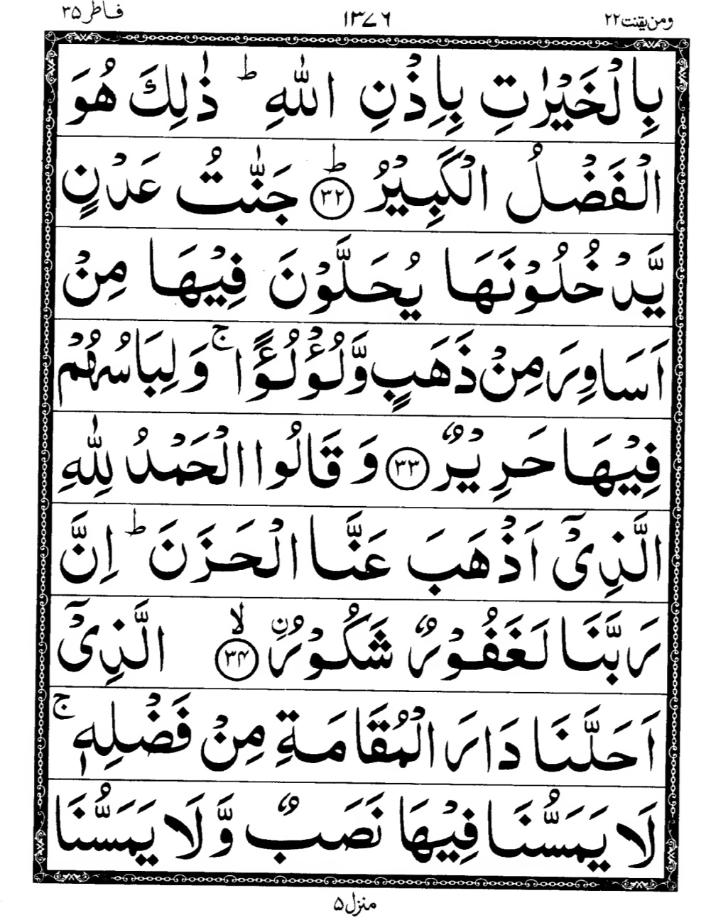 ومن یقنت ۲۲ ۱۳۷۶ فاطر ۳۵
بِالْخَيْرٰتِ بِاِذْنِ اللّٰهِ ؕ ذٰلِكَ هُوَ
الْفَضْلُ الْكَبِيْرُ ؕ ﴿۳۲﴾ جَنّٰتُ عَدْنٍ
يَّدْخُلُوْنَهَا يُحَلَّوْنَ فِيْهَا مِنْ
اَسَاوِرَ مِنْ ذَهَبٍ وَّلُؤْلُؤًا ۚ وَ لِبَاسُهُمْ
فِيْهَا حَرِيْرٌ ﴿۳۳﴾ وَ قَالُوا الْحَمْدُ لِلّٰهِ
الَّذِيْۤ اَذْهَبَ عَنَّا الْحَزَنَ ؕ اِنَّ
رَبَّنَا لَغَفُوْرٌ شَكُوْرُ ۨ ۙ ﴿۳۴﴾ الَّذِيْۤ
اَحَلَّنَا دَارَ الْمُقَامَةِ مِنْ فَضْلِهٖ ۚ
لَا يَمَسُّنَا فِيْهَا نَصَبٌ وَّ لَا يَمَسُّنَا
منزل ۵